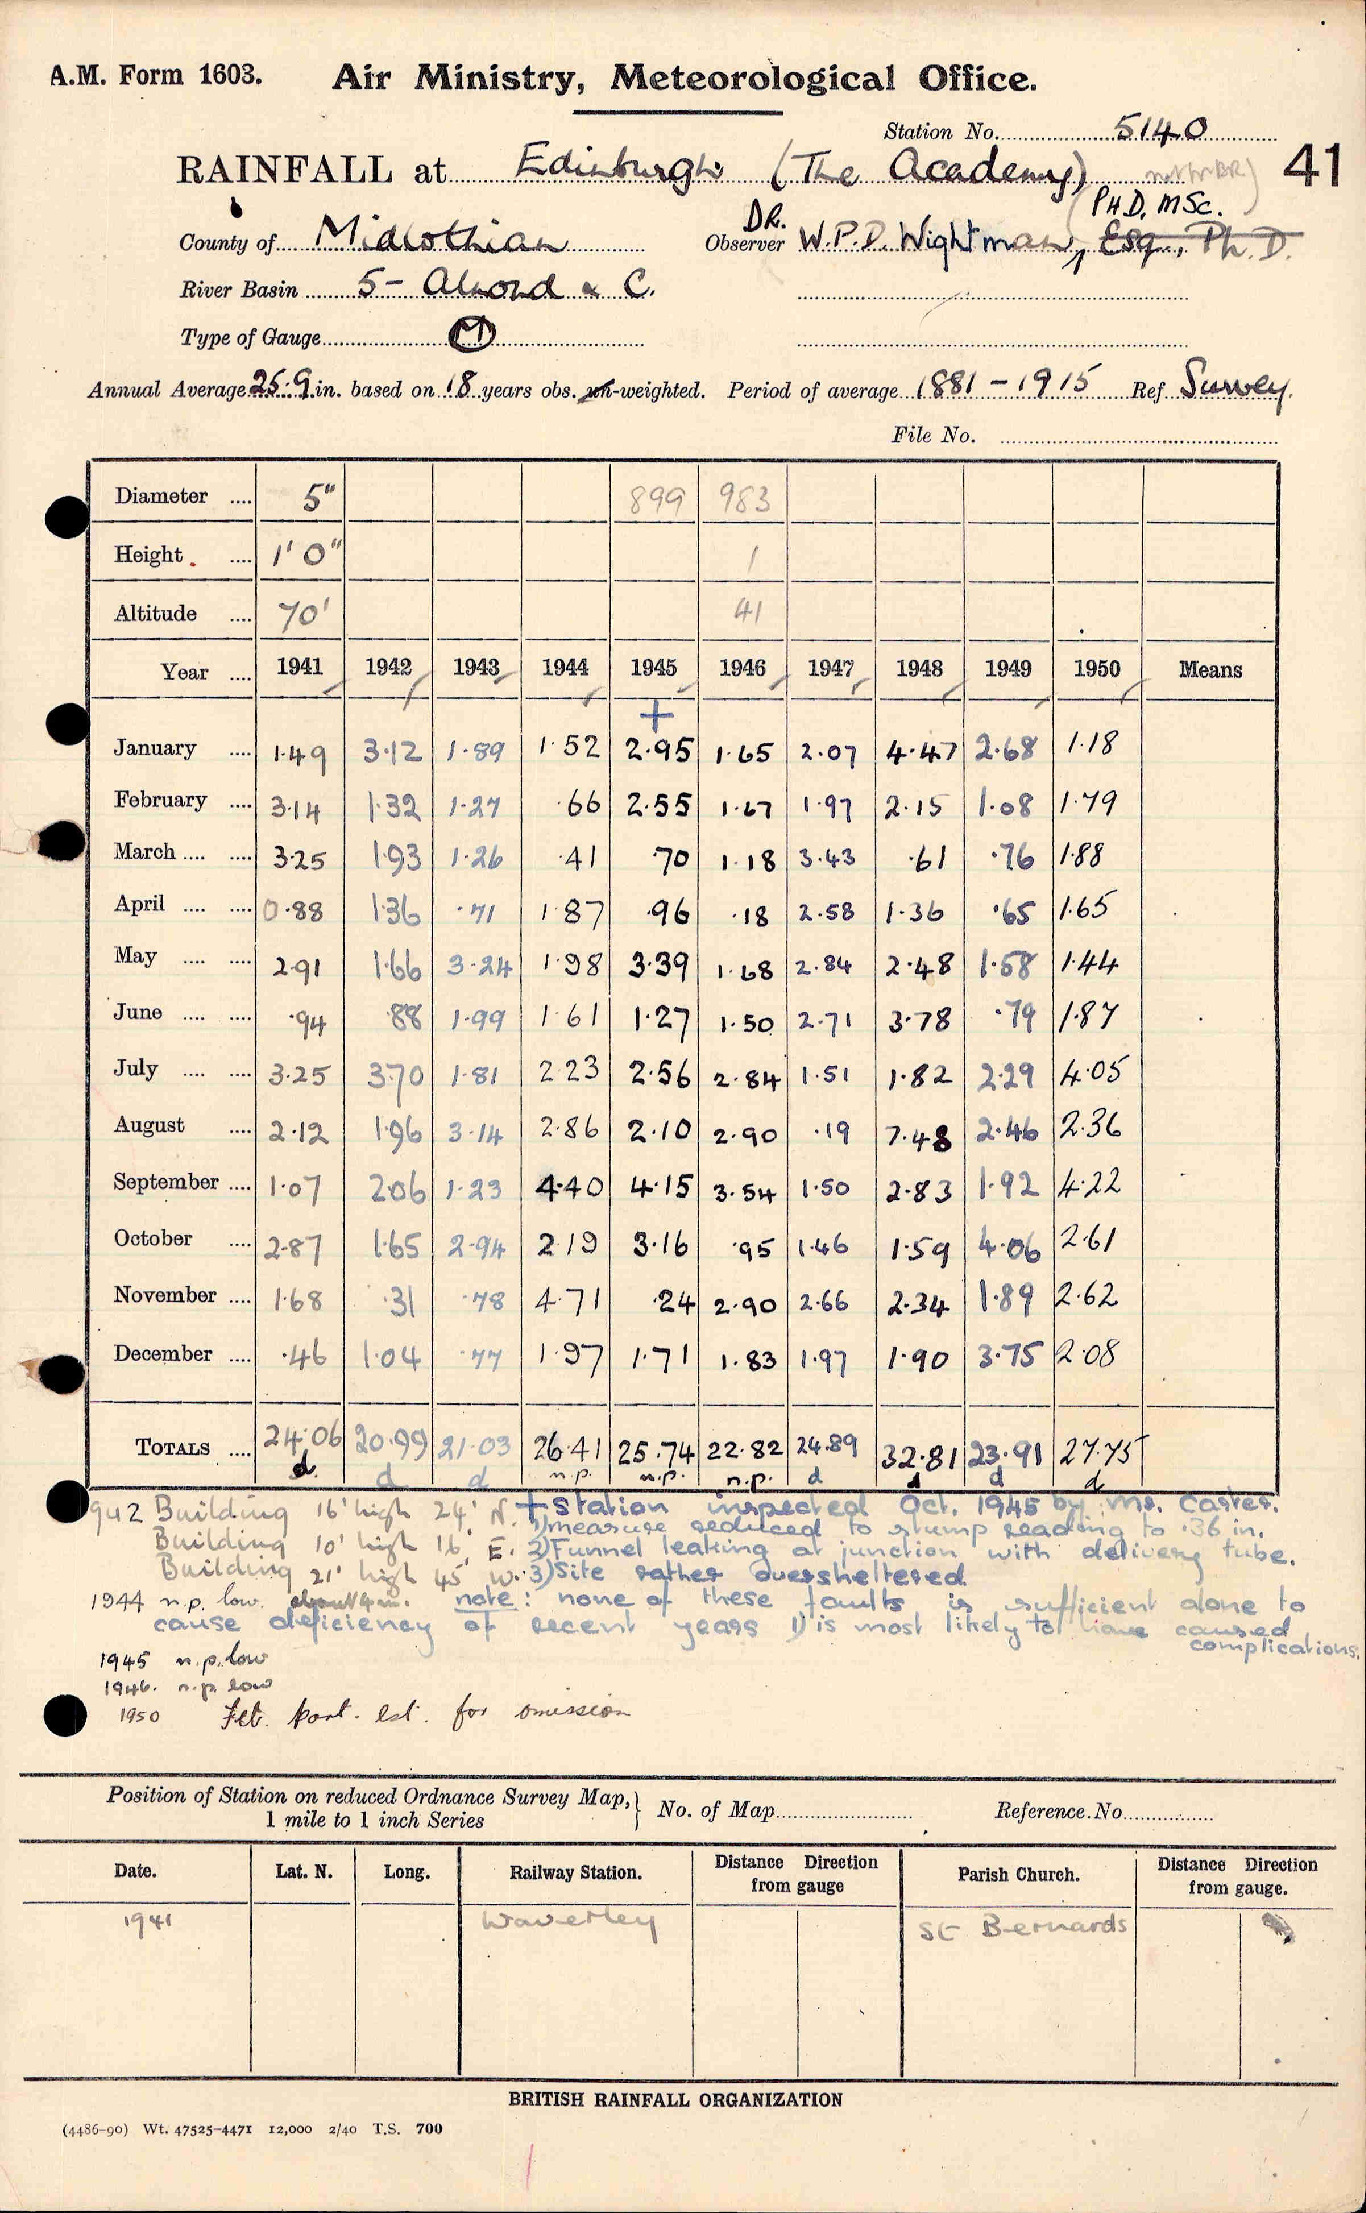 A.M. Form 1603. Air Ministry, Meteorological Office.
Station No. 5140
RAINFALL at Edinburgh (The Academy) 41
DR. PH.D, MSc.
County of Midlothian Observer W.P.D. Wightman, Esq., Ph.D.
River Basin 5- Almond & C.
Type of Gauge M
Annual Average 25.9 in. based on 18 years obs. un-weighted. Period of average 1881-1915 Ref Survey.
File No.
Diameter .... 5" 899 983
Height .... 1'0" 1
Altitude .... 70' 41
Year .... 1941 1942 1943 1944 1945 1946 1947 1948 1949 1950 Means
+
January .... 1.49 3.12 1.89 1.52 2.95 1.65 2.07 4.47 2.68 1.18
February .... 3.14 1.32 1.27 .66 2.55 1.67 1.97 2.15 1.08 1.79
March .... .... 3.25 1.93 1.26 .41 .70 1.18 3.43 .61 .76 1.88
April .... .... 0.88 1.36 .71 1.87 .96 .18 2.58 1.36 .65 1.65
May .... .... 2.91 1.66 3.24 1.98 3.39 1.68 2.84 2.48 1.58 1.44
June .... .... .94 .88 1.99 1.61 1.27 1.50 2.71 3.78 .79 1.87
July .... .... 3.25 3.70 1.81 2.23 2.56 2.84 1.51 1.82 2.29 4.05
August .... 2.12 1.96 3.14 2.86 2.10 2.90 .19 7.48 2.46 2.36
September .... 1.07 2.06 1.23 4.40 4.15 3.54 1.50 2.83 1.92 4.22
October .... 2.87 1.65 2.94 2.19 3.16 .95 1.46 1.59 4.06 2.61
November .... 1.68 .31 .78 4.71 .24 2.90 2.66 2.34 1.89 2.62
December .... .46 1.04 .77 1.97 1.71 1.83 1.97 1.90 3.75 2.08
TOTALS .... 24.06 20.99 21.03 26.41 25.74 22.82 24.89 32.81 23.91 27.75
d d d n.p. n.p. n.p. d d d d
942 Building 16' high 24' N. + Station inspected Oct. 1945 by Mr. Carter.
1) measure reduced to stump reading to .36 in.
Building 10' high 16' E. 2) Funnel leaking at junction with delivery tube.
Building 21' high 45' W. 3) Site rather oversheltered
1944 n.p. low. about 4 in. note: none of these faults is sufficient alone to
cause deficiency of recent years 1) is most likely to have caused
complications.
1945 n.p. low
1946. n.p. low
1950 Feb. part. est. for omission
Position of Station on reduced Ordnance Survey Map, 1 mile to 1 inch Series } No. of Map Reference No
Date. Lat. N. Long. Railway Station. Distance Direction from gauge Parish Church. Distance Direction from gauge.
1941 Waverley St Bernards
BRITISH RAINFALL ORGANIZATION
(4486-90) Wt. 47525-4471 12,000 2/40 T.S. 700